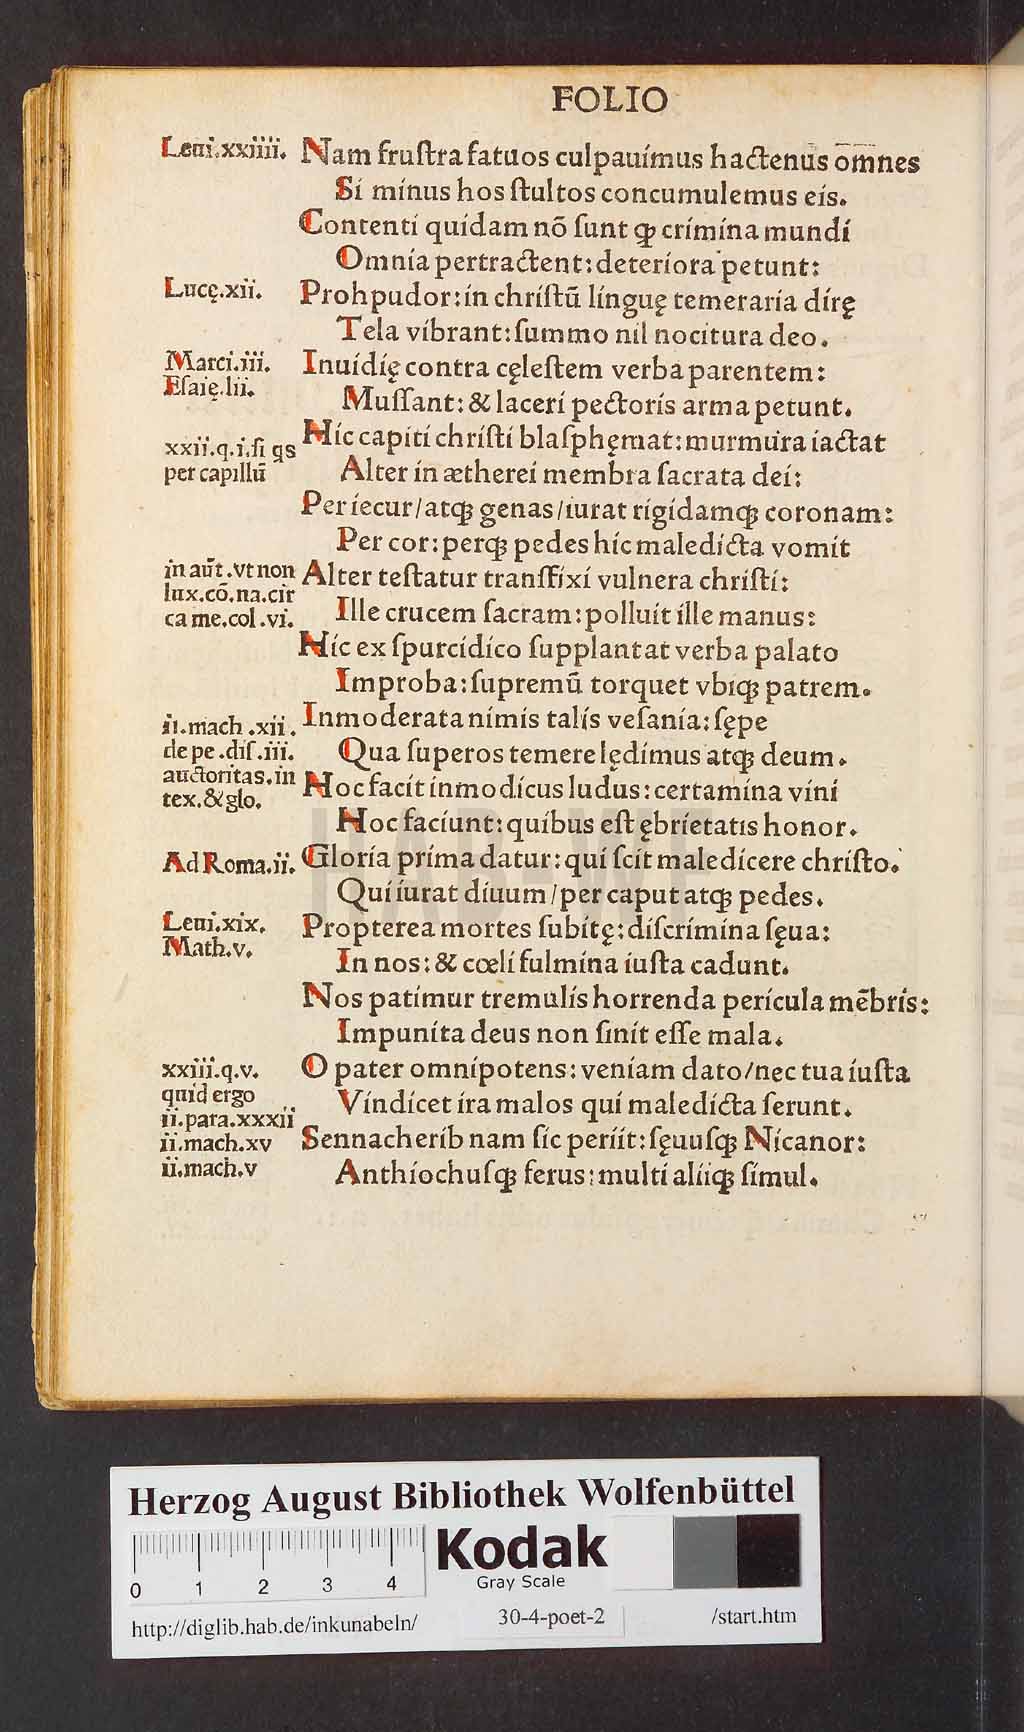 FOLIO
Leui.xxiiii. Nam fruſtra fatuos culpauimus hactenus om̄nes
Si minus hos ſtultos concumulemus eis.
Contenti quidam nō ſunt ꝙ crimina mundi
Omnia pertractent: deteriora petunt:
Lucę.xii. Prohpudor: in chriſtū linguę temeraria dirę
Tela vibrant: ſummo nil nocitura deo.
Marci.iii. Inuidię contra cęleſtem verba parentem:
Eſaię.lii. Muſſant: & laceri pectoris arma petunt.
xxii.q.i.ſi qs Hic capiti chriſti blaſphęmat: murmura iactat
per capillū Alter in ætherei membra ſacrata dei:
Per iecur/atqꝫ genas/iurat rigidamqꝫ coronam:
Per cor: perqꝫ pedes hic maledicta vomit
in aut̄.vt non Alter teſtatur tranſfixi vulnera chriſti:
lux.cō.na.cir
ca me.col.vi. Ille crucem ſacram: polluit ille manus:
Hic ex ſpurcidico ſupplantat verba palato
Improba: ſupremū torquet vbiqꝫ patrem.
ii.mach.xii. Inmoderata nimis talis veſania: ſępe
de pe.diſ.iii. Qua ſuperos temere lędimus atqꝫ deum.
auctoritas.in Hoc facit inmodicus ludus: certamina vini
tex.&glo.
Hoc faciunt: quibus eſt ębrietatis honor.
Ad Roma.ii. Gloria prima datur: qui ſcit maledicere chriſto.
Qui iurat diuum/per caput atqꝫ pedes.
Leui.xix. Propterea mortes ſubitę: diſcrimina ſęua:
Math.v.
In nos: & cœli fulmina iuſta cadunt.
Nos patimur tremulis horrenda pericula mēbris:
Impunita deus non ſinit eſſe mala.
xxiii.q.v. O pater omnipotens: veniam dato/nec tua iuſta
quid ergo
Vindicet ira malos qui maledicta ferunt.
ii.para.xxxii
ii.mach.xv Sennacherib nam ſic periit: ſęuuſqꝫ Nicanor:
ii.mach.v Anthiochuſqꝫ ferus: multi aliiqꝫ ſimul.
HAB-WF
Herzog August Bibliothek Wolfenbüttel
Kodak
Gray Scale
0 1 2 3 4
http://diglib.hab.de/inkunabeln/ 30-4-poet-2 /start.htm